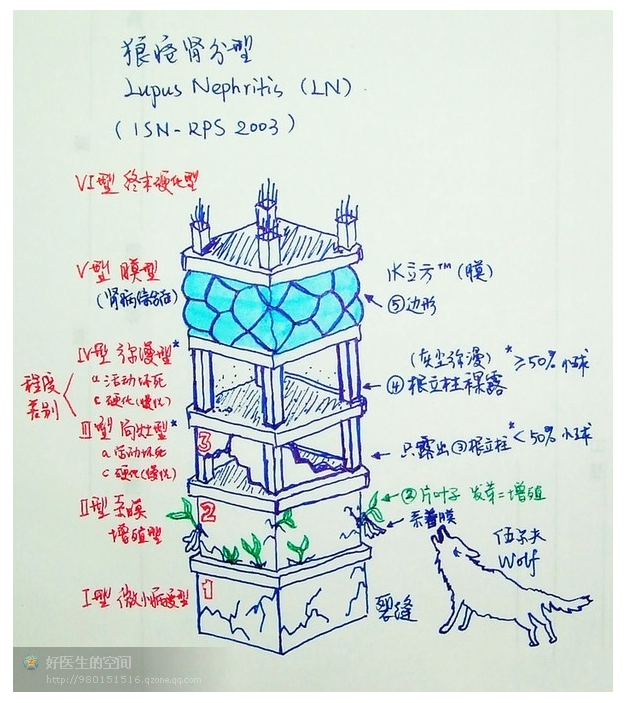 狼疮肾分型
Lupus Nephritis (LN)
(ISN-RPS 2003)
VI型 终末硬化型
V型 膜型
(肾病综合征)
水立方™(膜)
⑤边形
IV型 弥漫型*
a 活动坏死
c 硬化(慢化)
程度差别
(灰尘弥漫)*≥50%小球
④根立柱裸露
III型 局灶型*
a 活动坏死
c 硬化(慢化)
3
只露出③根立柱*<50%小球
II型 系膜
增殖型
2
②片叶子 发芽=增殖
系着膜
I型 微小病变型
1
裂缝
伍尔夫
Wolf
好医生的空间
http://980151516.qzone.qq.com